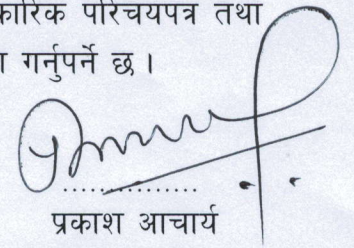 कारिक परिचयपत्र तथा
गर्नुपर्ने छ ।
..................
प्रकाश आचार्य